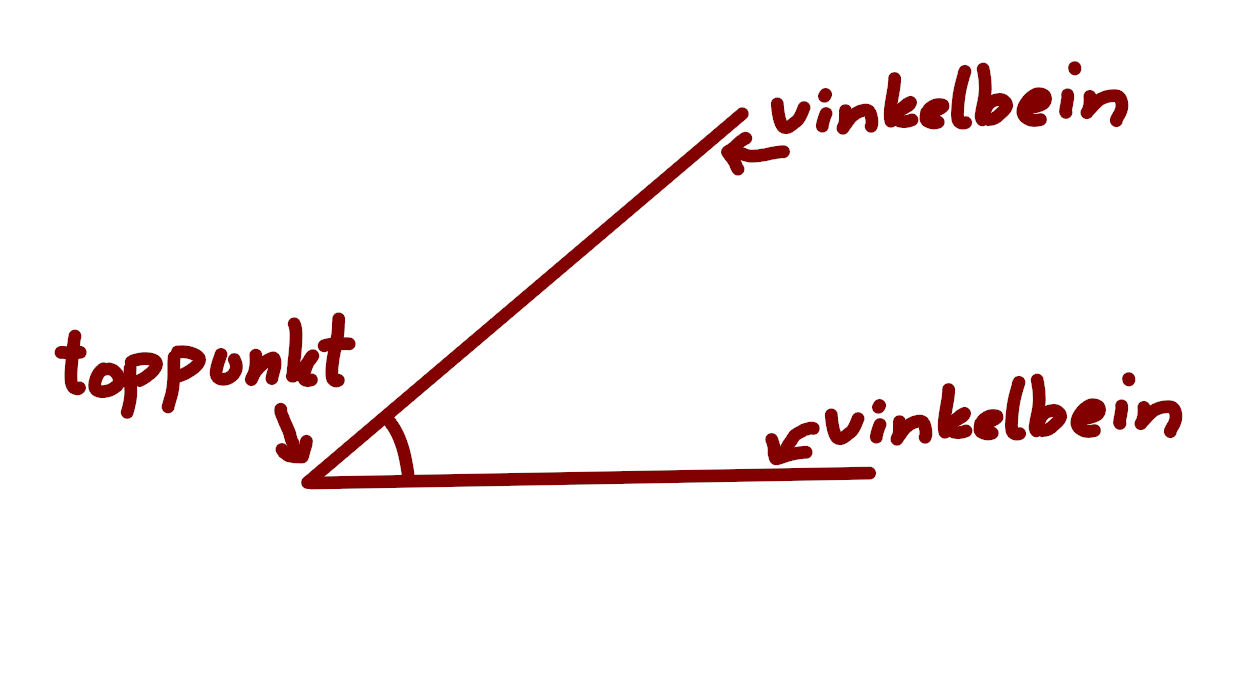 vinkelbein
toppunkt
vinkelbein